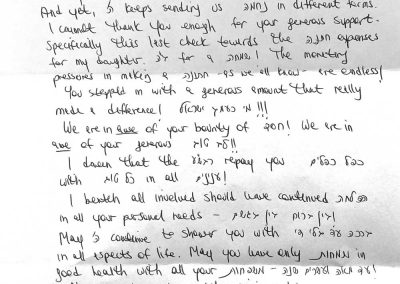 And yet, ה' keeps sending us נחמה in different forms.
I cannot thank you enough for your generous support.
Specifically this last check towards the חתונה expenses
for my daughter. for a שמחה! The monetary
pressures in making a חתונה -as we all know- are endless!
You stepped in with a generous amount that really
made a difference! מי כעמך ישראל!!!
We are in awe of your bounty of חסד! We are in
awe of your generous לב טוב!!!
I daven that the repay you כפל כפליים
with כל טוב in all ענינים!
I bentch all involved should have continued הצלחה
in all your personal needs -
May ה' continue to shower you with ברכה עד בלי די
in all aspects of life. May you have only שמחות in
good health with all your משפחות -